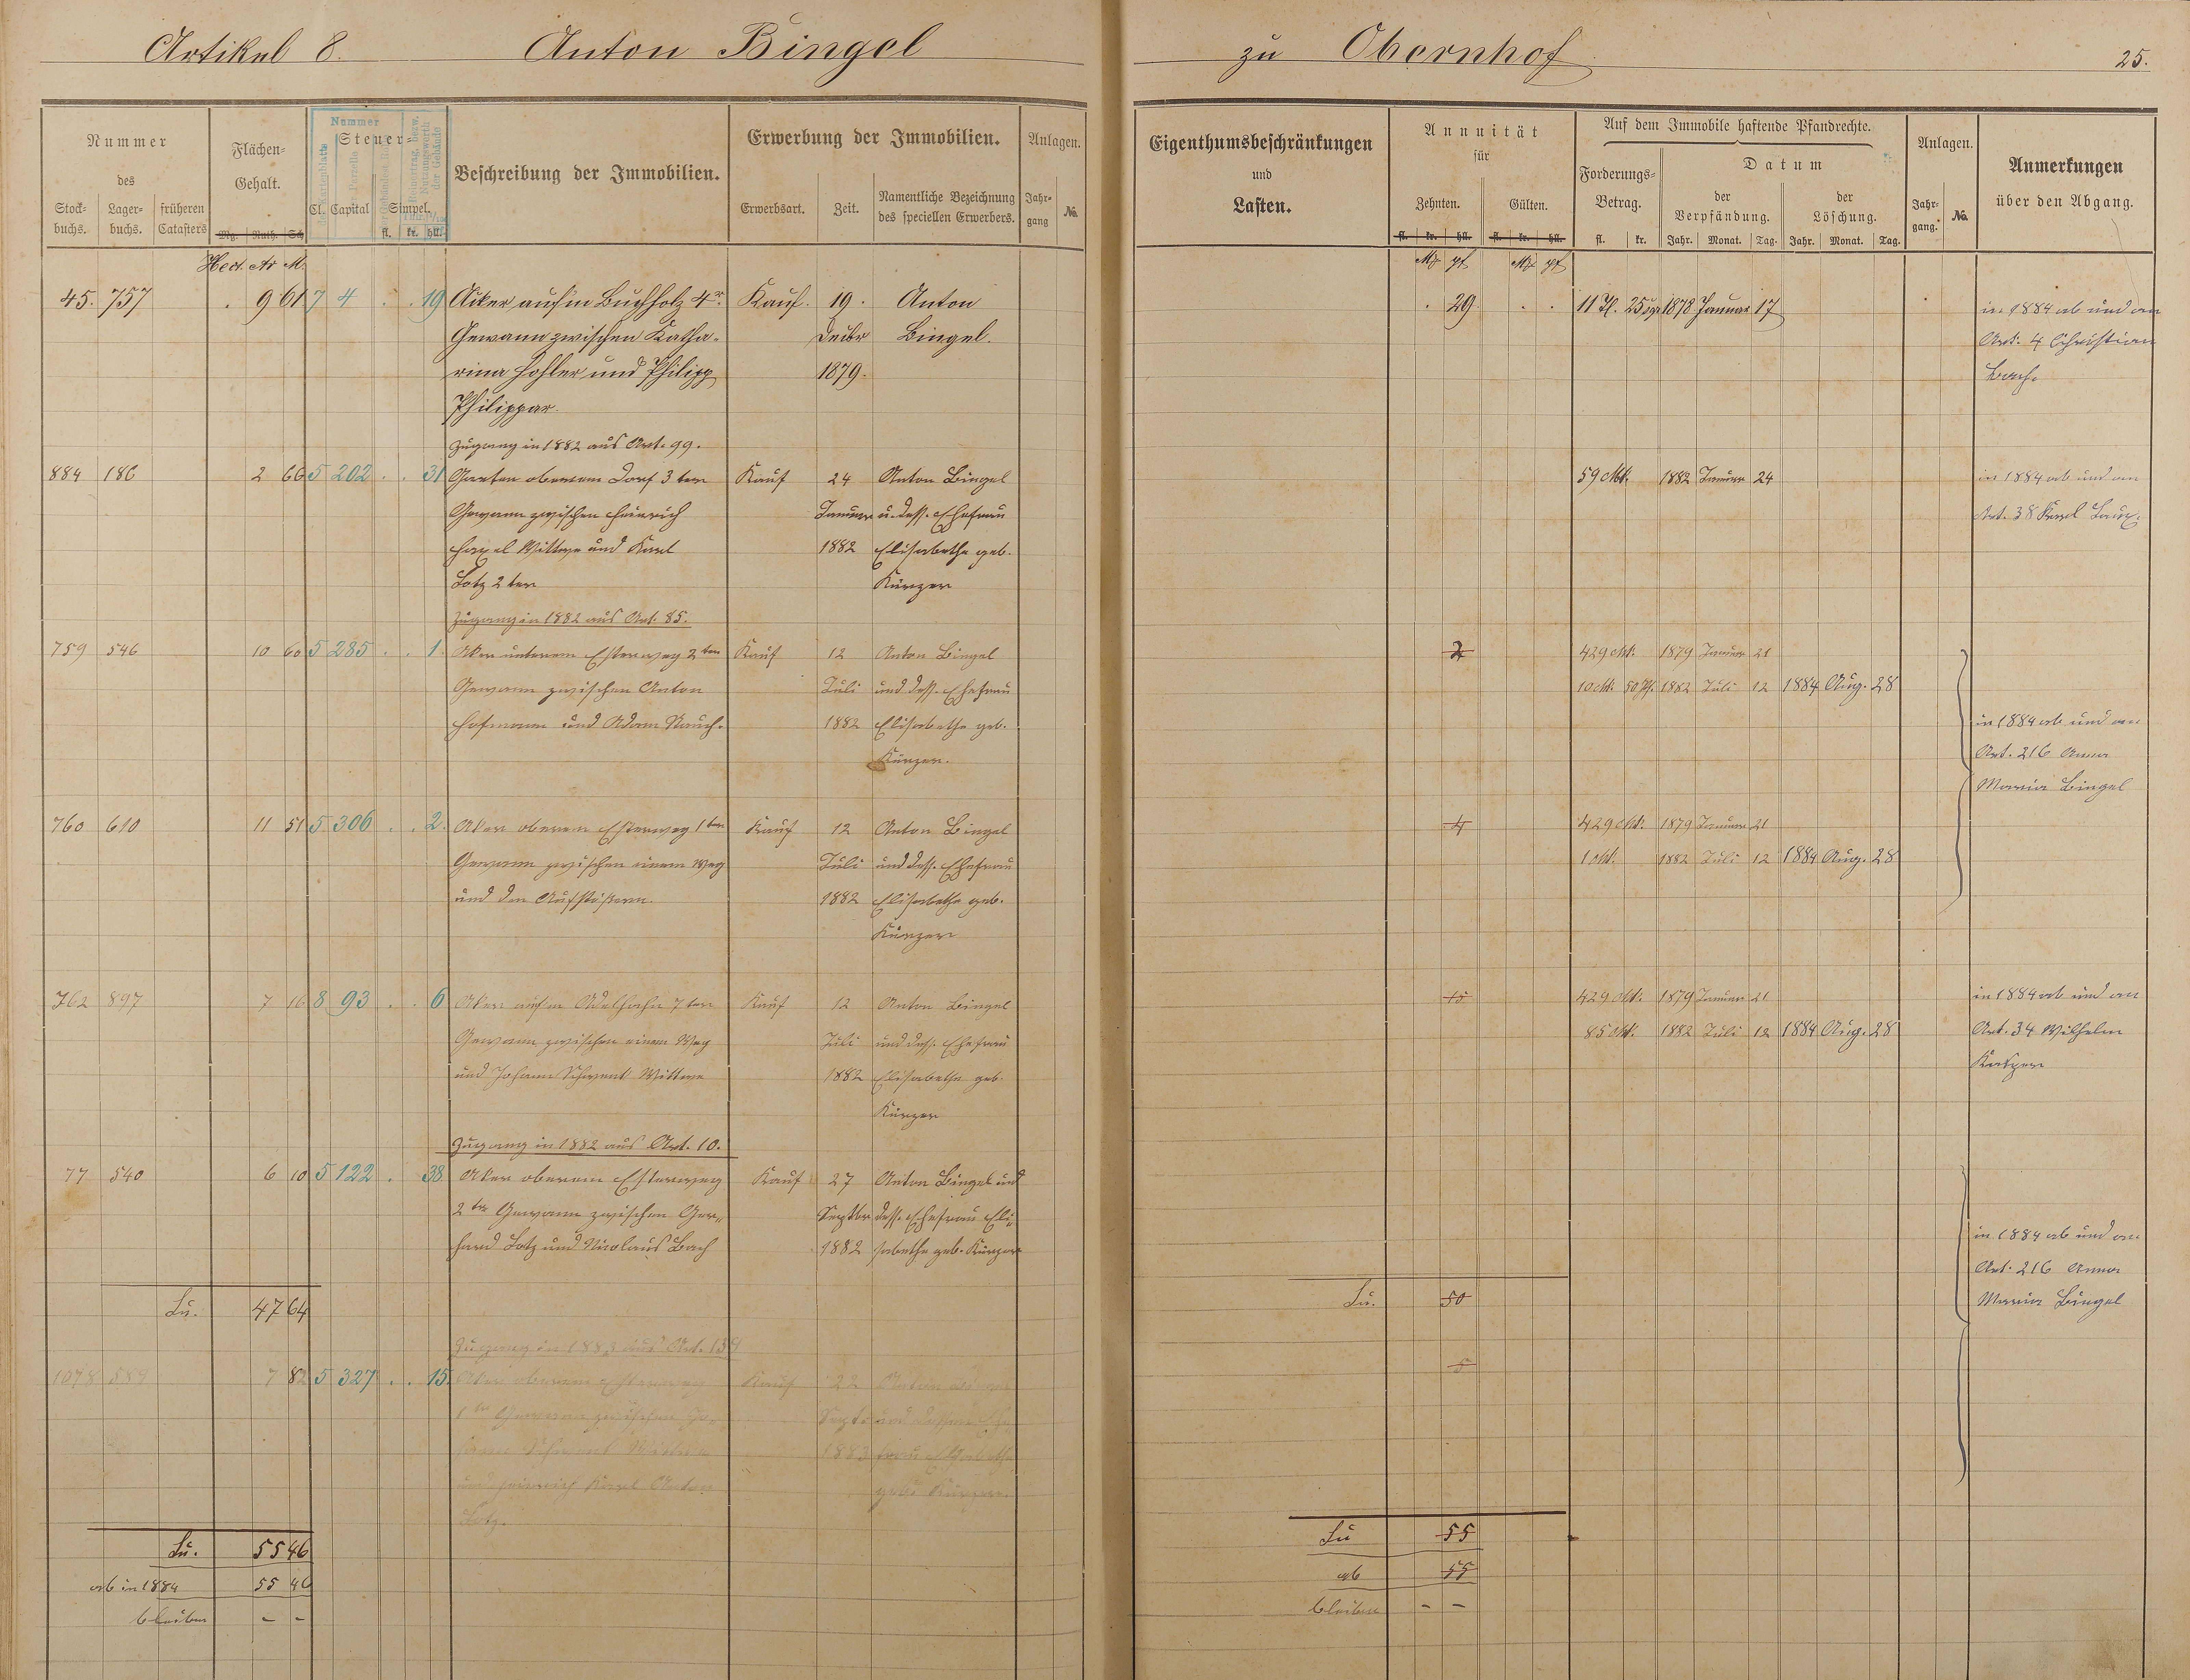 Artikel 8. Anton Bingel zu Obernhof 25.
Nummer des
Stockbuchs. Lagerbuchs. früheren Catasters
Flächen-Gehalt.
Mg. Ruth. Sch
Nummer
Steuer-
Cl. Capital Simpel.
fl. kr. hll.
Beschreibung der Immobilien.
Erwerbung der Immobilien.
Erwerbsart. Zeit. Namentliche Bezeichnung des speciellen Erwerbers.
Anlagen.
Jahrgang No.
Eigenthumsbeschränkungen und Lasten.
Annuität für
Zehnten. Gülten.
fl. kr. hll. fl. kr. hll.
Auf dem Immobile haftende Pfandrechte.
Forderungs-Betrag. Datum
der Verpfändung. der Löschung.
fl. kr. Jahr. Monat. Tag. Jahr. Monat. Tag.
Anlagen.
Jahrgang. No.
Anmerkungen über den Abgang.
Hect. Ar M. Mk Pf Mk Pf
45. 757 . 9 61 7 4 . . 19 Acker auf'm Buchholz 4r Kauf. 19. Anton . 29 . . 11 Th. 25 sgr 1878 Januar 17 in 1884 ab und an
Gewann zwischen Katha- Decbr Bingel. Art. 4 Christian
rina Hohler und Philipp 1879. Bach
Philippar.
Zugang in 1882 aus Art. 99.
884 186 2 66 5 202 . . 31 Garten oberem Dorf 3ter Kauf 24 Anton Bingel 59 Mk. 1882 Januar 24 in 1884 ab und an
Gewann zwischen Heinrich Januar u. dess. Ehefrau Art. 38 Karl
Wittwe und Karl 1882 Elisabethe geb.
Lotz 2ter Kurzer
Zugang in 1882 aus Art. 85.
759 546 10 60 5 285 . . 1. Aker unterem Esterweg 2ter Kauf 12 Anton Bingel 2 429 Mk. 1879 Januar 21
Gewann zwischen Anton Juli und dess. Ehefrau 10 Mk. 50 Pf. 1882 Juli 12 1884 Aug. 28
Hofmann und Adam Rauch. 1882 Elisabethe geb. in 1884 ab und an
Kurzer. Art. 216 Anna
Maria Bingel
760 610 11 51 5 306 . . 2. Aker oberem Esterweg 1ter Kauf 12 Anton Bingel 4 429 Mk. 1879 Januar 21
Gewann zwischen einem Weg Juli und dess. Ehefrau 1 Mk. 1882 Juli 12 1884 Aug. 28
und den Aufstößern. 1882 Elisabethe geb.
Kurzer
762 897 7 16 8 93 . . 6 Aker auf'm 7ter Kauf 12 Anton Bingel 15 429 Mk. 1879 Januar 21 in 1884 ab und an
Gewann zwischen einem Weg Juli und dess. Ehefrau 85 Mk. 1882 Juli 12 1884 Aug. 28 Art. 34 Wilhelm
und Johann Schwenk Wittwe 1882 Elisabethe geb.
Kurzer
Zugang in 1882 aus Art. 10.
77 540 6 10 5 122 . 38 Aker oberem Esterweg Kauf 27 Anton Bingel und
2ter Gewann zwischen Ger- Septbr dess. Ehefrau Eli-
hard Lotz und Nicolaus Bach 1882 sabethe geb. Kurzer in 1884 ab und an
Art. 216 Anna
Su. 47 64 Su. 50 Maria Bingel
Zugang in 1883 aus Art.
1078 584 7 82 5 327 . . 15. Aker oberem Esterweg Kauf 22 Anton 5
1ter Gewann zwischen Jo- Sept. und dessen Ehe-
hann Schwenk Wittwe 1883 frau Elisabethe
und Heinrich Karl Anton geb. Kurzer.
Lotz.
Su. 55 46 Su 55
ab in 1884 55 46 ab 55
bleiben – – bleiben – –